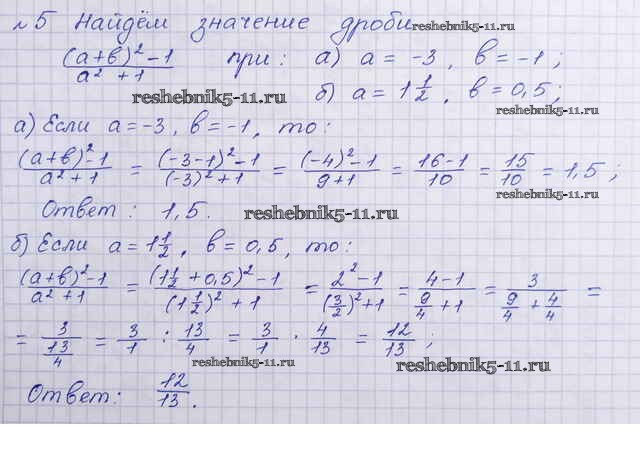 №5 Найдём значение дроби reshebnik5-11.ru
((a+b)²-1)/(a²+1) при: а) a = -3, b = -1;
reshebnik5-11.ru б) a = 1 1/2, b = 0,5; reshebnik5-11.ru
а) Если a = -3, b = -1, то:
((a+b)²-1)/(a²+1) = ((-3-1)²-1)/((-3)²+1) = ((-4)²-1)/(9+1) = (16-1)/10 = 15/10 = 1,5;
reshebnik5-11.ru
Ответ: 1,5. reshebnik5-11.ru
б) Если a = 1 1/2, b = 0,5, то:
((a+b)²-1)/(a²+1) = ((1 1/2 + 0,5)²-1)/((1 1/2)²+1) = (2²-1)/((3/2)²+1) = (4-1)/(9/4+1) = 3/(9/4+4/4) =
= 3/(13/4) = 3/1 : 13/4 = 3/1 · 4/13 = 12/13;
reshebnik5-11.ru reshebnik5-11.ru
Ответ: 12/13.